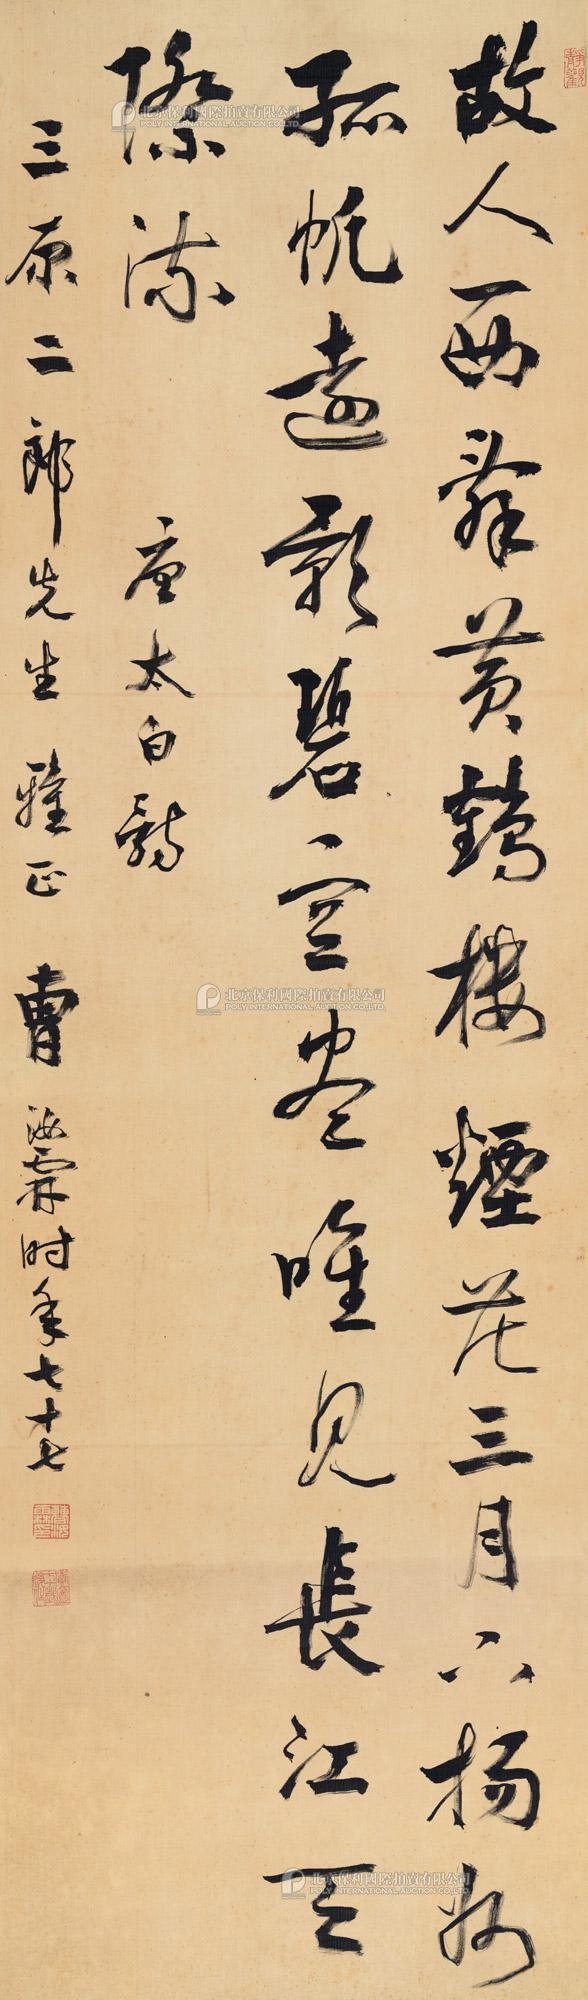 故人西辞黄鶴樓煙花三月下揚州
孤帆遠影碧空尽唯見長江天
際流
唐太白詩
三原二郎先生雅正 曹汝霖时年七十七
靜觀
北京保利國際拍賣有限公司
POLY INTERNATIONAL AUCTION CO.,LTD.
北京保利國際拍賣有限公司
POLY INTERNATIONAL AUCTION CO.,LTD.
北京保利國際拍賣有限公司
POLY INTERNATIONAL AUCTION CO.,LTD.